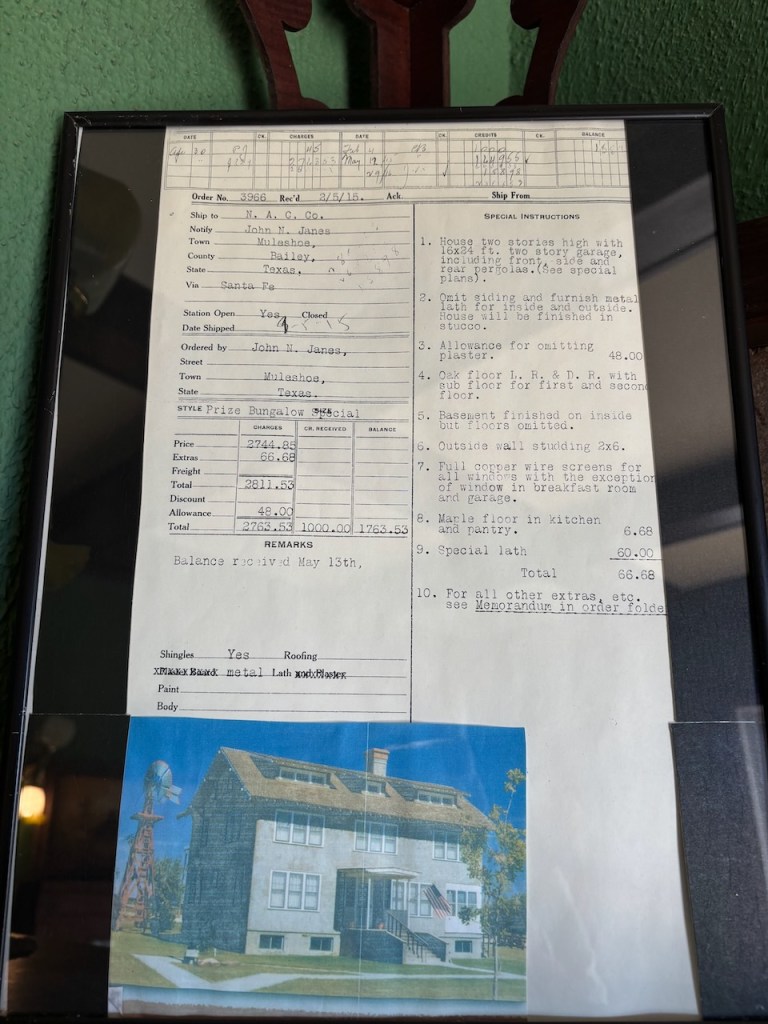 DATE CK. CHARGES DATE CK. CREDITS CK. BALANCE
May
Order No. 3966 Rec'd 3/5/15. Ack. Ship From
Ship to N. A. C. Co.
Notify John N. Janes
Town Muleshoe,
County Bailey,
State Texas,
Via Santa Fe
Station Open Yes Closed
Date Shipped
Ordered by John N. Janes,
Street
Town Muleshoe,
State Texas.
STYLE Prize Bungalow SIZE Special
CHARGES CR. RECEIVED BALANCE
Price 2744.85
Extras 66.68
Freight
Total 2811.53
Discount
Allowance 48.00
Total 2763.53 1000.00 1763.53
REMARKS
Balance received May 13th,
Shingles Yes Roofing
metal Lath and Plaster
Paint
Body
SPECIAL INSTRUCTIONS
1. House two stories high with
16x24 ft. two story garage,
including front, side and
rear pergolas.(See special
plans).
2. Omit siding and furnish metal
lath for inside and outside.
House will be finished in
stucco.
3. Allowance for omitting
plaster. 48.00
4. Oak floor L. R. & D. R. with
sub floor for first and second
floor.
5. Basement finished on inside
but floors omitted.
6. Outside wall studding 2x6.
7. Full copper wire screens for
all windows with the exception
of window in breakfast room
and garage.
8. Maple floor in kitchen
and pantry. 6.68
9. Special lath 60.00
Total 66.68
10. For all other extras, etc.
see Memorandum in order folde